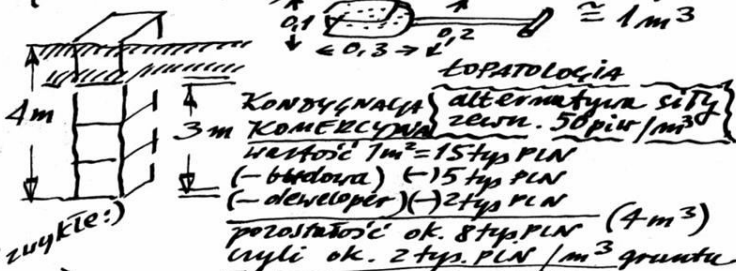 0,1
0,3
0,2
≅ 1 m³
ŁOPATOLOGIA
4m
3m
KONDYGNACJA
KOMERCYJNA
alternatywa siły
zewn. 50 piw/m³
wartość 1m²=15 tys PLN
(-budowa) (-)5 tys PLN
(-deweloper)(-)2 tys PLN
pozostałość ok. 8 tys PLN (4m³)
czyli ok. 2 tys. PLN/m³ gruntu
zwykle:)